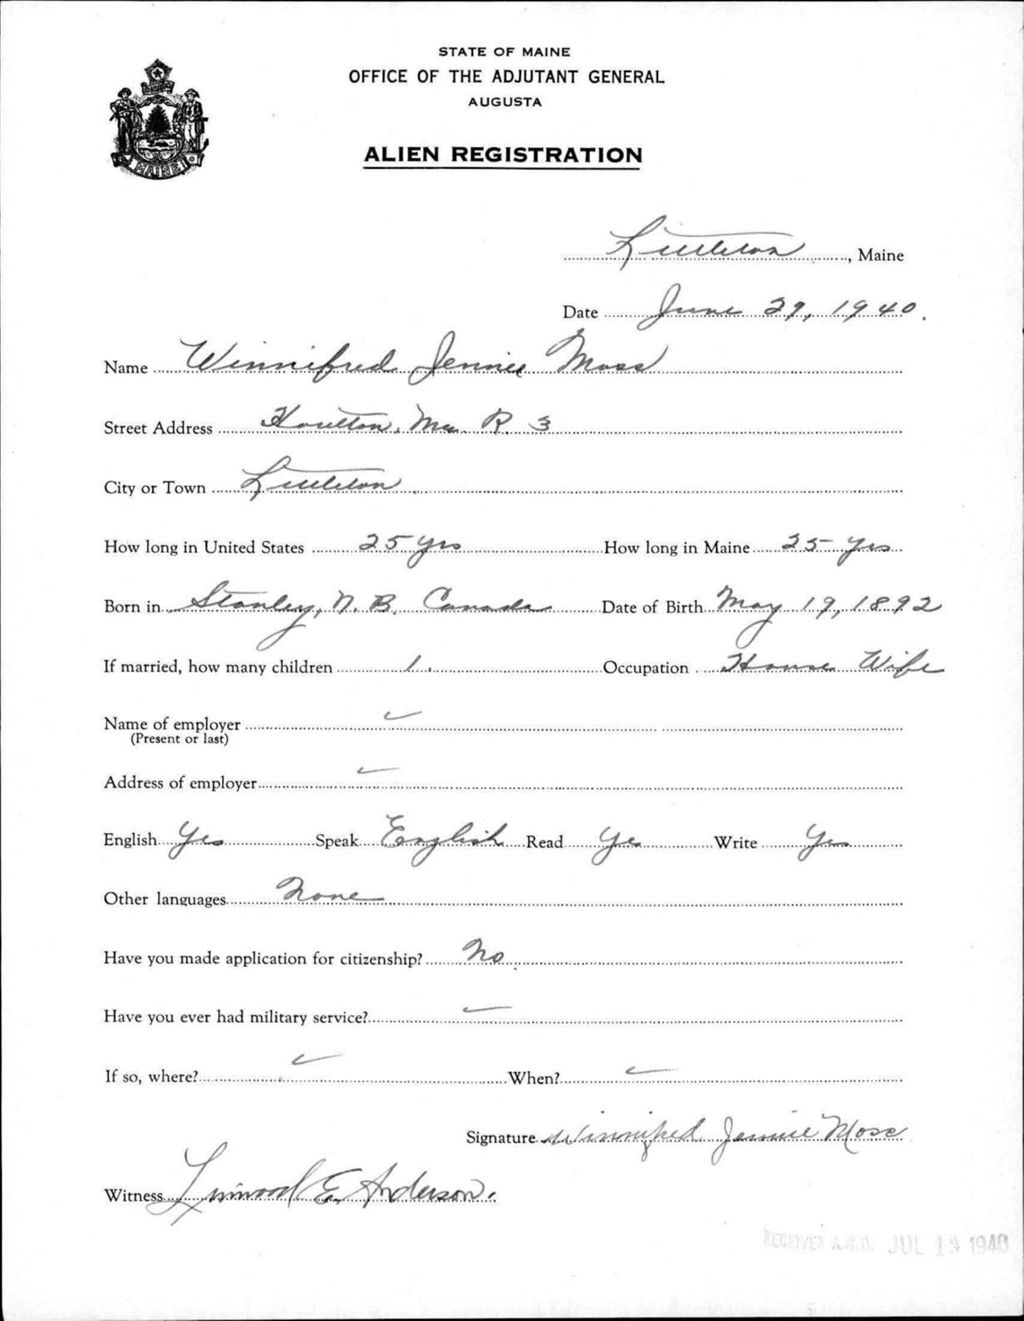 STATE OF MAINE
OFFICE OF THE ADJUTANT GENERAL
AUGUSTA
MAINE
ALIEN REGISTRATION
Littleton, Maine
Date June 29, 1940.
Name Winnifred Jennie Moss
Street Address Houlton, Me. R. 3
City or Town Littleton
How long in United States 25 yrs How long in Maine 25 yrs
Born in Stanley, N. B. Canada Date of Birth May 19, 1892
If married, how many children 1. Occupation House Wife
Name of employer
(Present or last)
Address of employer
English Yes Speak English Read Yes Write Yes
Other languages None
Have you made application for citizenship? No.
Have you ever had military service?
If so, where? When?
Signature Winnifred Jennie Moss
Witness Linwood E. Anderson.
RECEIVED A.G.O. JUL 13 1940